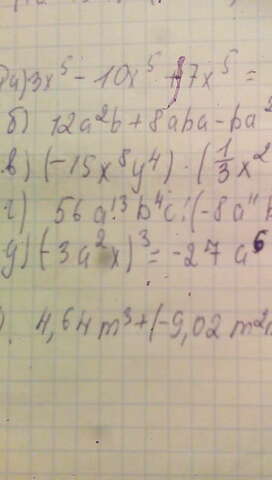 а) 3x⁵ - 10x⁵ + 7x⁵ =
б) 12a²b + 8aba - ba²
в) (-15x⁸y⁴) · (1/3 x²
г) 56a¹³b⁴c : (-8a¹¹
д) (-3a²x)³ = -27a⁶
4,64m³ + (-9,02m²